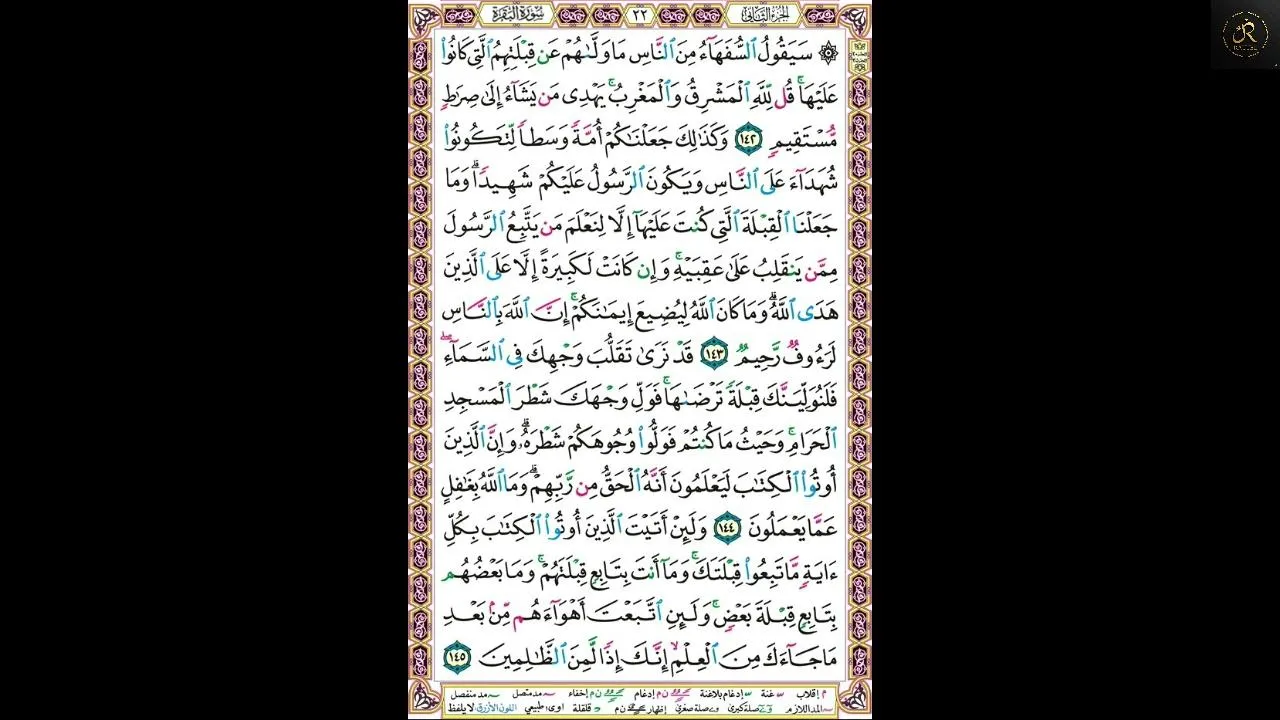 الجزء الثاني ٢٢ سورة البقرة
۞ سَيَقُولُ ٱلسُّفَهَآءُ مِنَ ٱلنَّاسِ مَا وَلَّىٰهُمْ عَن قِبْلَتِهِمُ ٱلَّتِى كَانُوا۟
عَلَيْهَا ۚ قُل لِّلَّهِ ٱلْمَشْرِقُ وَٱلْمَغْرِبُ ۚ يَهْدِى مَن يَشَآءُ إِلَىٰ صِرَٰطٍ
مُّسْتَقِيمٍ ١٤٢ وَكَذَٰلِكَ جَعَلْنَٰكُمْ أُمَّةً وَسَطًا لِّتَكُونُوا۟
شُهَدَآءَ عَلَى ٱلنَّاسِ وَيَكُونَ ٱلرَّسُولُ عَلَيْكُمْ شَهِيدًا ۗ وَمَا
جَعَلْنَا ٱلْقِبْلَةَ ٱلَّتِى كُنتَ عَلَيْهَآ إِلَّا لِنَعْلَمَ مَن يَتَّبِعُ ٱلرَّسُولَ
مِمَّن يَنقَلِبُ عَلَىٰ عَقِبَيْهِ ۚ وَإِن كَانَتْ لَكَبِيرَةً إِلَّا عَلَى ٱلَّذِينَ
هَدَى ٱللَّهُ ۗ وَمَا كَانَ ٱللَّهُ لِيُضِيعَ إِيمَٰنَكُمْ ۚ إِنَّ ٱللَّهَ بِٱلنَّاسِ
لَرَءُوفٌ رَّحِيمٌ ١٤٣ قَدْ نَرَىٰ تَقَلُّبَ وَجْهِكَ فِى ٱلسَّمَآءِ ۖ
فَلَنُوَلِّيَنَّكَ قِبْلَةً تَرْضَىٰهَا ۚ فَوَلِّ وَجْهَكَ شَطْرَ ٱلْمَسْجِدِ
ٱلْحَرَامِ ۚ وَحَيْثُ مَا كُنتُمْ فَوَلُّوا۟ وُجُوهَكُمْ شَطْرَهُۥ ۗ وَإِنَّ ٱلَّذِينَ
أُوتُوا۟ ٱلْكِتَٰبَ لَيَعْلَمُونَ أَنَّهُ ٱلْحَقُّ مِن رَّبِّهِمْ ۗ وَمَا ٱللَّهُ بِغَٰفِلٍ
عَمَّا يَعْمَلُونَ ١٤٤ وَلَئِنْ أَتَيْتَ ٱلَّذِينَ أُوتُوا۟ ٱلْكِتَٰبَ بِكُلِّ
ءَايَةٍ مَّا تَبِعُوا۟ قِبْلَتَكَ ۚ وَمَآ أَنتَ بِتَابِعٍ قِبْلَتَهُمْ ۚ وَمَا بَعْضُهُم
بِتَابِعٍ قِبْلَةَ بَعْضٍ ۚ وَلَئِنِ ٱتَّبَعْتَ أَهْوَآءَهُم مِّنۢ بَعْدِ
مَا جَآءَكَ مِنَ ٱلْعِلْمِ ۙ إِنَّكَ إِذًا لَّمِنَ ٱلظَّٰلِمِينَ ١٤٥
م إقلاب غنة إدغام بلاغنة ن م إدغام ن م إخفاء مد متصل مد منفصل
المد اللازم صلة كبرى صلة صغرى إظهار ن م قلقلة اوى طبيعي اللون الأزرق لا يلفظ